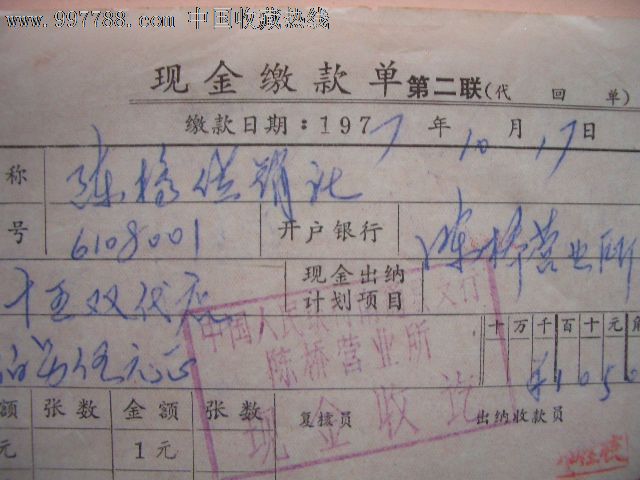 www.997788.com 中国收藏热线
现金缴款单 第二联(代 回 单)
缴款日期:1977年10月17日
称 陈桥供销社
号 6108001 开户银行 陈桥营业所
现金出纳
计划项目
中国人民银行
陈桥营业所
现金收讫
十万千百十元角
¥1050
额 张数 金额 张数 复核员 出纳收款员
元 1元